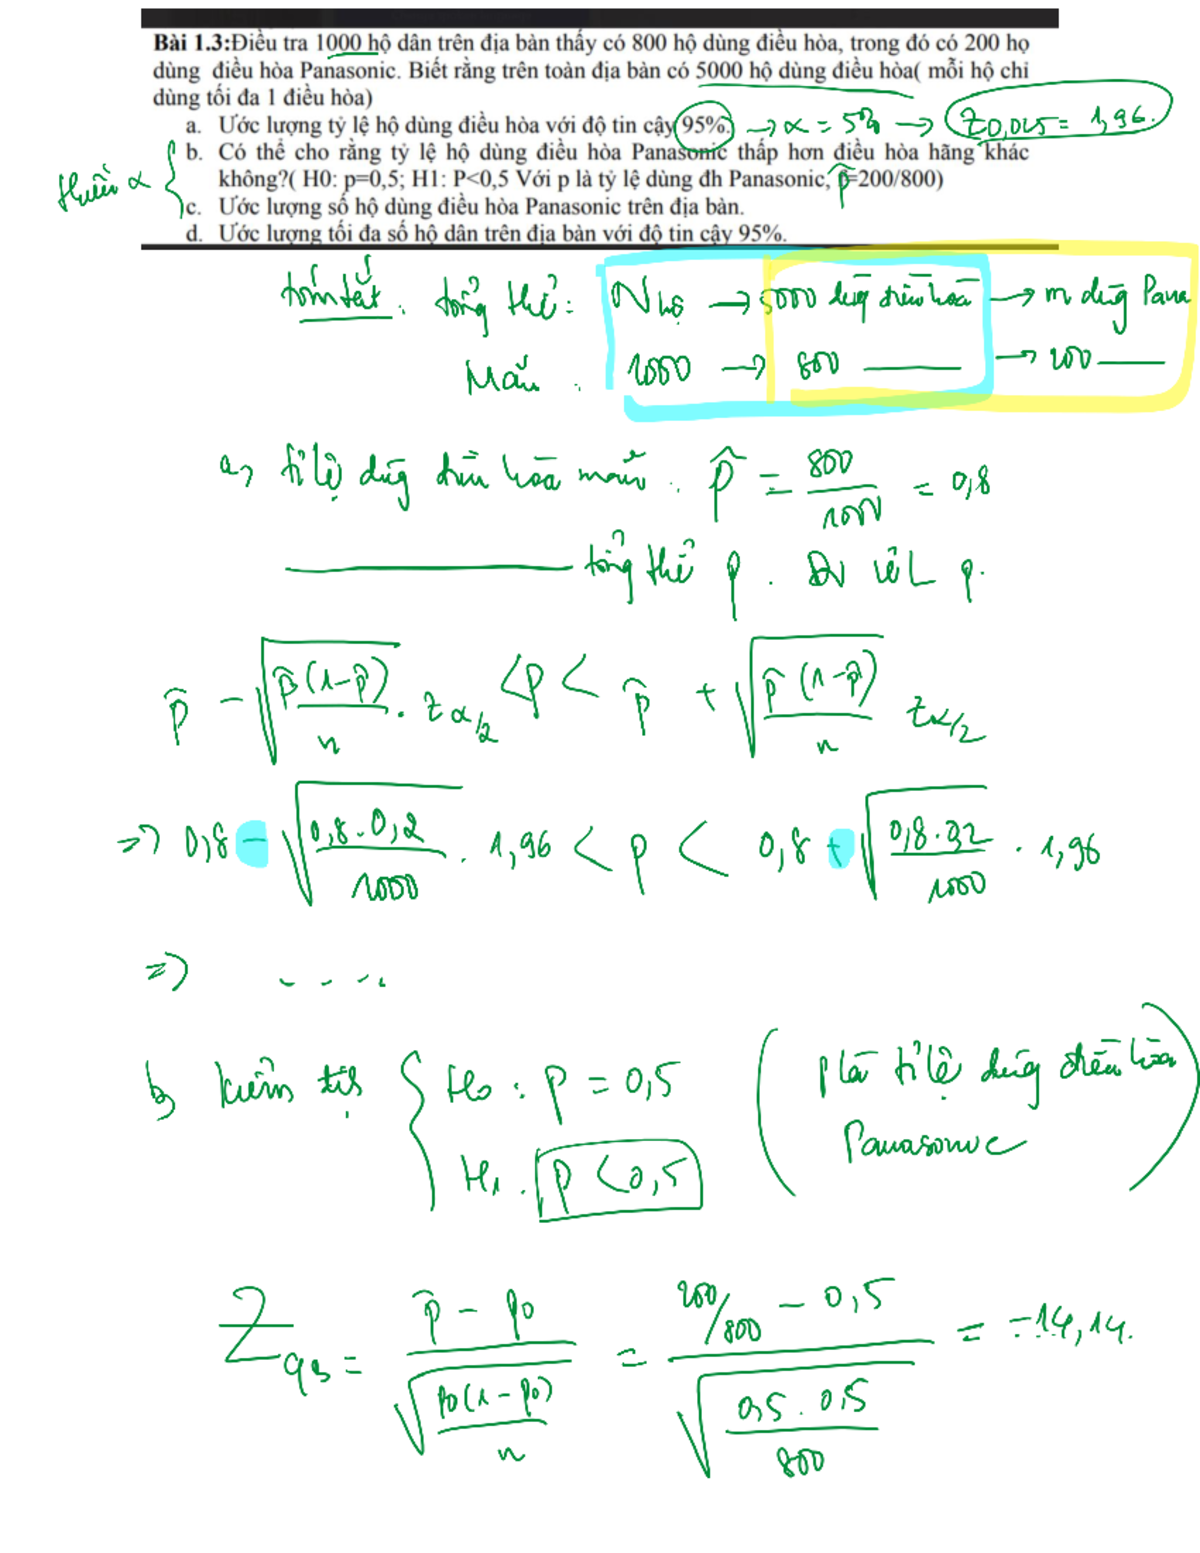 Bài 1.3:Điều tra 1000 hộ dân trên địa bàn thấy có 800 hộ dùng điều hòa, trong đó có 200 họ
dùng điều hòa Panasonic. Biết rằng trên toàn địa bàn có 5000 hộ dùng điều hòa( mỗi hộ chỉ
dùng tối đa 1 điều hòa)
a. Ước lượng tỷ lệ hộ dùng điều hòa với độ tin cậy 95%. → α = 5% → Z0,025 = 1,96.
b. Có thể cho rằng tỷ lệ hộ dùng điều hòa Panasonic thấp hơn điều hòa hãng khác
thiếu α
không?( H0: p=0,5; H1: P<0,5 Với p là tỷ lệ dùng đh Panasonic, p̂=200/800)
c. Ước lượng số hộ dùng điều hòa Panasonic trên địa bàn.
d. Ước lượng tối đa số hộ dân trên địa bàn với độ tin cậy 95%.
tóm tắt. tổng thể: N hộ → 5000 dùng điều hoà → m dùng Pana
Mẫu: 1000 → 800 → 200
a, tỉ lệ dùng điều hòa mẫu. p̂ = 800/1000 = 0,8
tổng thể p. ƯL p.
p̂ - √(p̂(1-p̂)/n) . zα/2 < p < p̂ + √(p̂(1-p̂)/n) zα/2
=> 0,8 - √(0,8.0,2/1000) . 1,96 < p < 0,8 + √(0,8.0,2/1000) . 1,96
=> ....
b, kiểm tra H0: p = 0,5 (p là tỉ lệ dùng điều hòa
H1. p < 0,5 Panasonic)
Zqs = (p̂ - p0)/√(p0(1-p0)/n) = (200/800 - 0,5)/√(0,5.0,5/800) = -14,14.